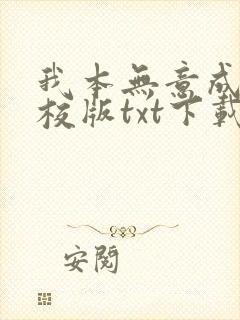 我本無意成
校版txt下載
安閱